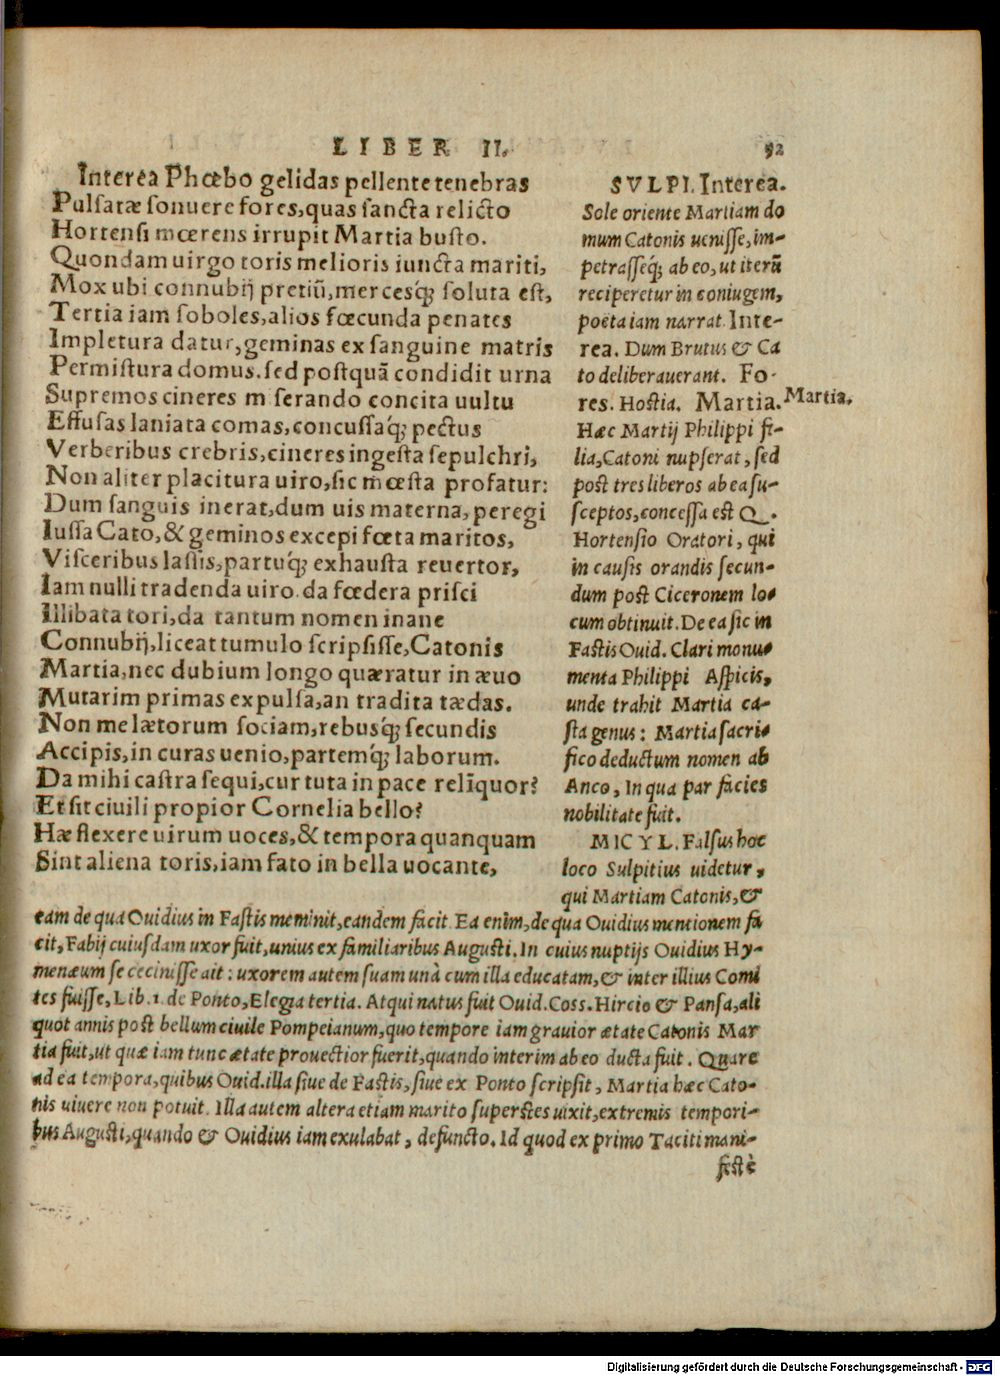 LIBER II.
52
Interea Phœbo gelidas pellente tenebras
Pulsatæ sonuere fores, quas sancta relicto
Hortensi mœrens irrupit Martia busto.
Quondam uirgo toris melioris iuncta mariti,
Mox ubi connubij pretiũ, mercesq́; soluta est,
Tertia iam soboles, alios fœcunda penates
Impletura datur, geminas ex sanguine matris
Permistura domus. sed postquã condidit urna
Supremos cineres m serando concita uultu
Effusas laniata comas, concussaq́; pectus
Verberibus crebris, cineres ingesta sepulchri,
Non aliter placitura uiro, sic mœsta profatur:
Dum sanguis inerat, dum uis materna, peregi
Iussa Cato, & geminos excepi fœta maritos,
Visceribus lassis, partuq́; exhausta reuertor,
Iam nulli tradenda uiro. da fœdera prisci
Illibata tori, da tantum nomen inane
Connubij, liceat tumulo scripsisse, Catonis
Martia, nec dubium longo quæratur in æuo
Mutarim primas expulsa, an tradita tædas.
Non me lætorum sociam, rebusq́; secundis
Accipis, in curas uenio, partemq́; laborum.
Da mihi castra sequi, cur tuta in pace relĩquor?
Et sit ciuili propior Cornelia bello?
Hæ flexere uirum uoces, & tempora quanquam
Sint aliena toris, iam fato in bella uocante,
SVLPI. Interea.
Sole oriente Martiam do
mum Catonis uenisse, im-
petrasseq́; ab eo, ut iterũ
reciperetur in coniugem,
poëta iam narrat. Inte-
rea. Dum Brutus & Ca
to deliberauerant. Fo-
res. Hostia. Martia.
Martia.
Hæc Martij Philippi fi-
lia, Catoni nupserat, sed
post tres liberos ab ea su-
sceptos, concessa est Q.
Hortensio Oratori, qui
in causis orandis secun-
dum post Ciceronem lo-
cum obtinuit. De ea sic in
Fastis Ouid. Clari monu-
menta Philippi Aspicis,
unde trahit Martia ca-
sta genus: Martia sacri-
fico deductum nomen ab
Anco, In qua par facies
nobilitate fuit.
MICYL. Falsus hoc
loco Sulpitius uidetur,
qui Martiam Catonis, &
eam de qua Ouidius in Fastis meminit, eandem facit. Ea enim, de qua Ouidius mentionem fa
cit, Fabij cuiusdam uxor fuit, unius ex familiaribus Augusti. In cuius nuptijs Ouidius Hy-
menæum se cecinisse ait: uxorem autem suam unà cum illa educatam, & inter illius Comi
tes fuisse, Lib. 1. de Ponto, Elegia tertia. Atqui natus fuit Ouid. Coss. Hircio & Pansa, ali
quot annis post bellum ciuile Pompeianum, quo tempore iam grauior ætate Catonis Mar
tia fuit, ut quæ iam tunc ætate prouectior fuerit, quando interim ab eo ducta fuit. Quare
ad ea tempora, quibus Ouid. illa siue de Fastis, siue ex Ponto scripsit, Martia hæc Cato-
nis uiuere non potuit. Illa autem altera etiam marito superstes uixit, extremis tempori-
bus Augusti, quando & Ouidius iam exulabat, defuncto. Id quod ex primo Taciti mani-
festè
Digitalisierung gefördert durch die Deutsche Forschungsgemeinschaft - DFG